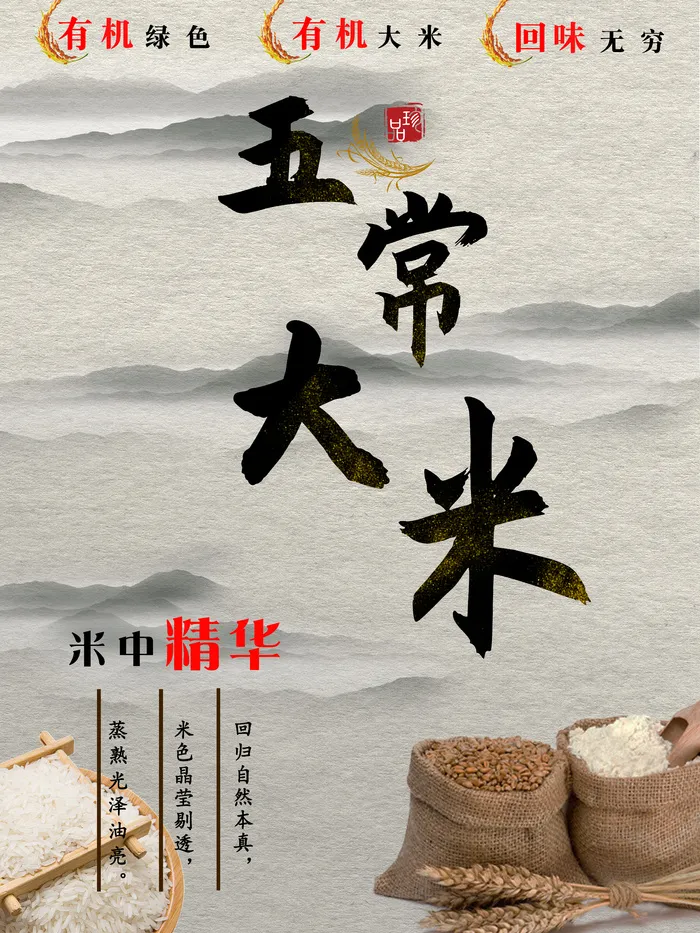 有机绿色
有机大米
回味无穷
五常大米
珍品
米中精华
回归自然本真，
米色晶莹剔透，
蒸熟光泽油亮。